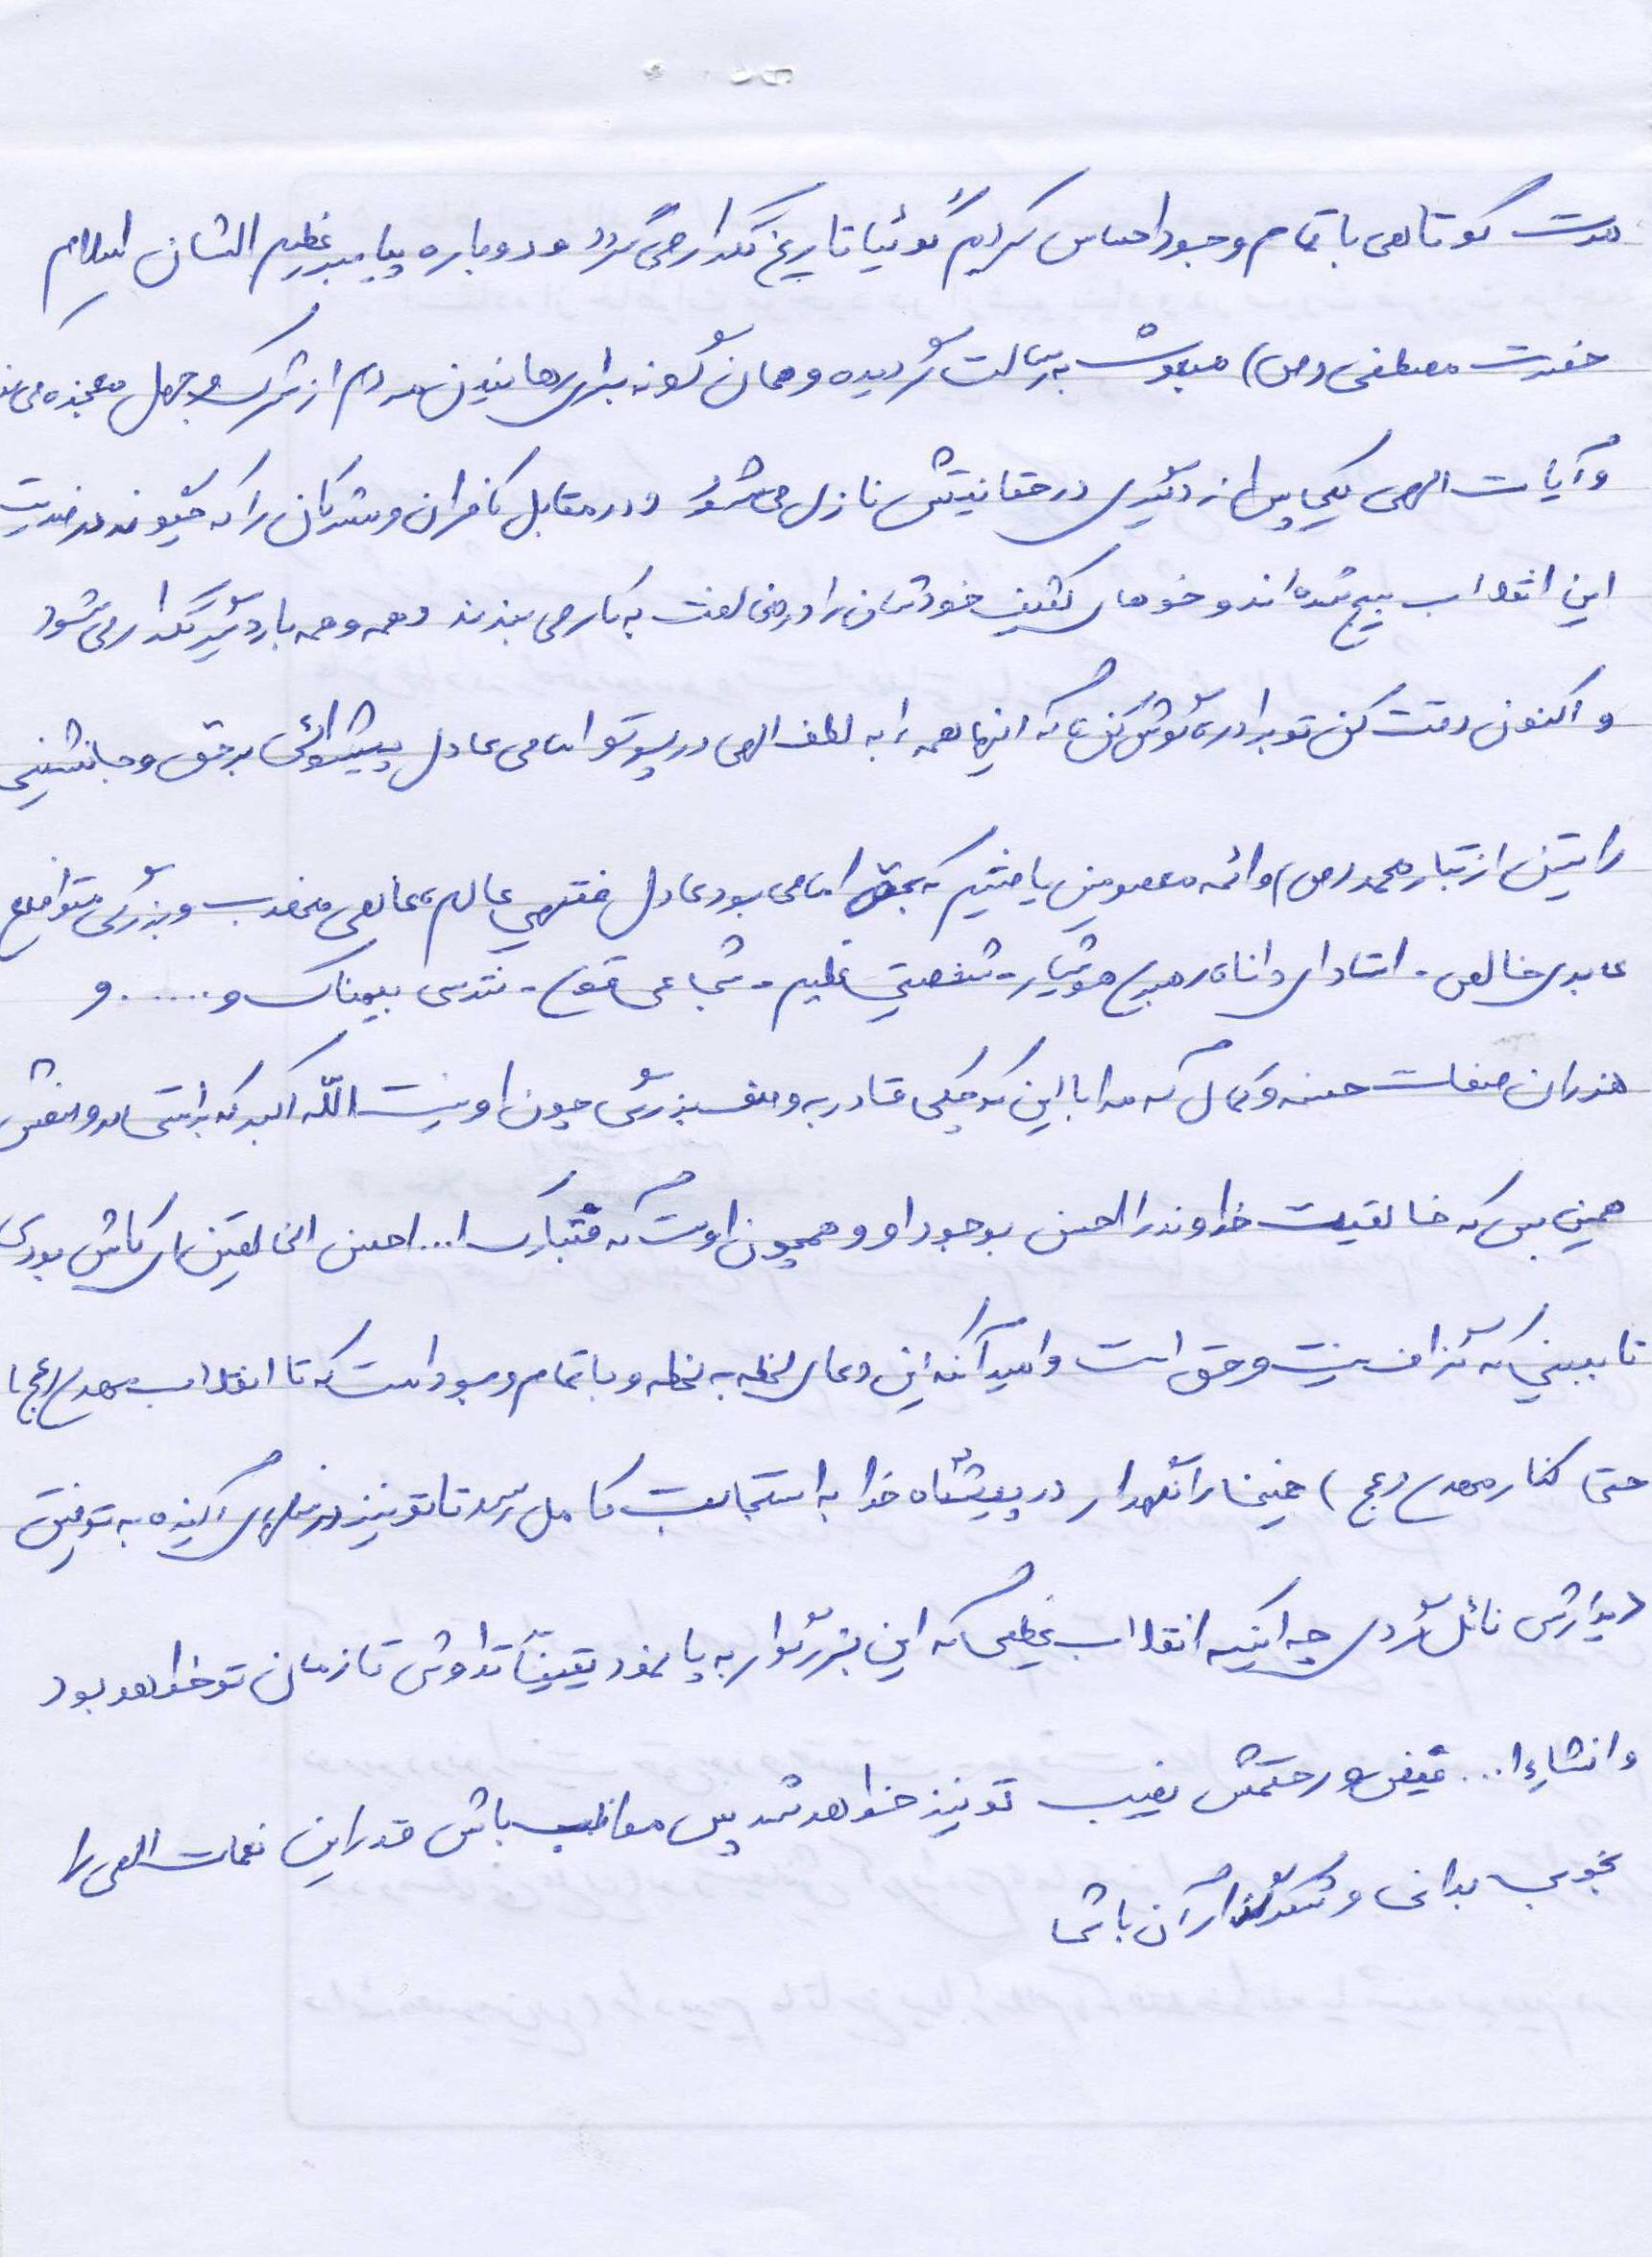 مدت کوتاهی با تمام وجود احساس کردیم گوئیا تاریخ تکرار می‌گردد و دوباره پیامبر عظیم الشان اسلام
حضرت مصطفی (ص) مبعوث به رسالت گردیده و همان گونه برای رهانیدن مردم از شرک و جهل معجزه می
و آیات الهی یکی پس از دیگری در حقانیتش نازل می‌شود و در مقابل کافران و مشرکان را که چگونه بر ضدیت
این انقلاب بسیج شده‌اند و خوهای کثیف خودشان را در مخالفت به کار می‌برند و همه و همه بار دیگر تکرار می‌شود
و اکنون دقت کن تو برادرم گوش کن که اینها همه را به لطف الهی در پرتو امامی عادل پیشوائی برحق و جانشینی
راستین از تبار محمد (ص) و ائمه معصومین یافتیم که بحق امامی بود عادل فقیهی عالم، عالمی مهذب و بزرگی متواضع
عابدی خالص - استادی دانا، رهبری هوشیار - شخصیتی عظیم - شجاعی قوی - نترسی بیمناک و ...... و
هزاران صفات حسنه و کمال که مرا با این کوچکی قادر به وصف بزرگی چون او نیست الله اکبر که براستی در وصفش
همین بس که خالقیت خداوند را احسن بوجود او و همچون اوست که فتبارک ا... احسن الخالقین ای کاش بودی
تا ببینی که گزاف نیست و حق است و امید آنکه این دعای لحظه به لحظه و با تمام وجود است که تا انقلاب مهدی (عج)
حتی کنار مهدی (عج) خمینی را نگهدار در پیشگاه خدا به استجابت کامل رسد تا تو نیز در آینده به توفیق
دیدارش نائل گردی چه اینکه انقلاب عظیمی که این بزرگوار به پا نمود یقیناً تداوش تا زمان تو خواهد بود
و انشاءا... فیض و رحمتش نصیب تو نیز خواهد شد پس مواظب باش قدر این نعمات الهی را
بخوبی بدانی و شکرگزار آن باشی